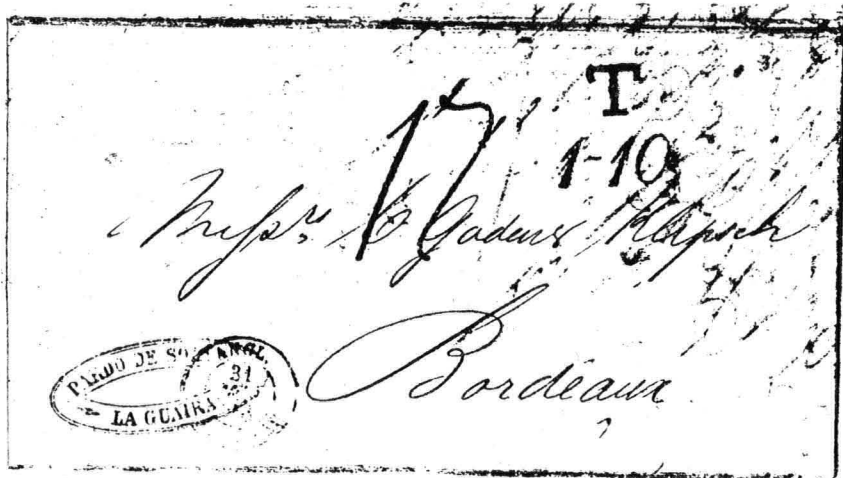 T
17
1-10
Messrs Gadens Klipsch
Bordeaux
PARDO DE
ANGL.
31
LA GUAIRA